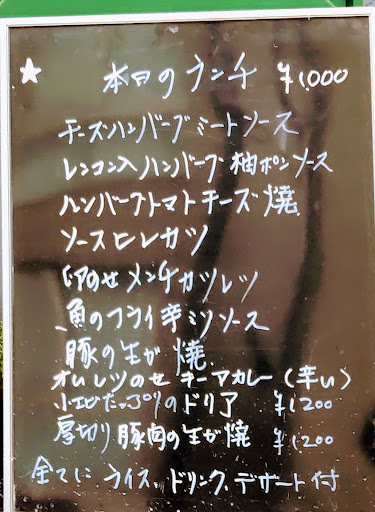 ★ 本日のランチ ¥1,000
チーズハンバーグミートソース
レンコン入ハンバーグ 柚ポンソース
ハンバーグトマトチーズ焼
ソースヒレカツ
卵のせメンチカツレツ
魚のフライ辛ミソソース
豚の生が焼
オムレツのせ キーマカレー(辛い)
小エビたっぷりのドリア ¥1,200
厚切り豚肉の生が焼 ¥1,200
全てに ライス、ドリンク、デザート付